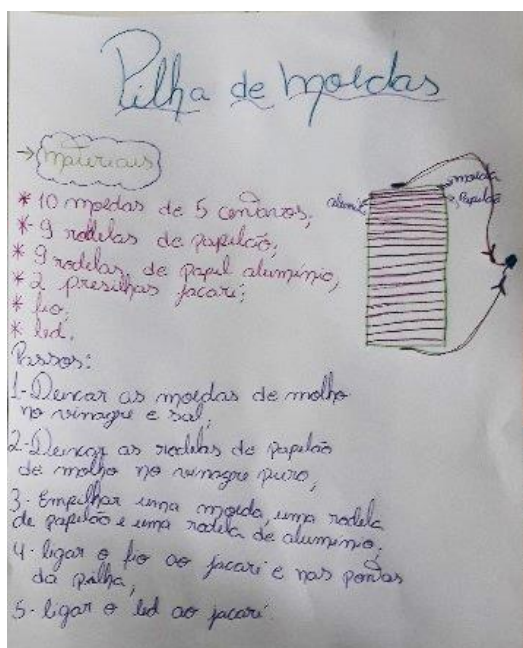 Pilha de moedas
→ materiais
* 10 moedas de 5 centavos;
* 9 rodelas de papelão;
* 9 rodelas de papel alumínio;
* 2 presilhas jacaré;
* fio;
* led.
alumínio
moeda
Papelão
Passos:
1- Deixar as moedas de molho
no vinagre e sal;
2- Deixar as rodelas de papelão
de molho no vinagre puro;
3- Empilhar uma moeda, uma rodela
de papelão e uma rodela de alumínio;
4- ligar o fio ao jacaré e nas pontas
da pilha;
5- ligar o led ao jacaré.